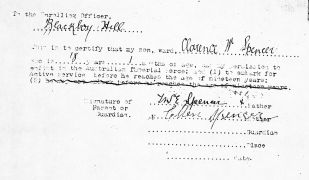 To the Enrolling Officer,
Blackboy Hill
This is to certify that my son, ward, Clarence W Spencer
who is 18 years 1 months of age, has my permission to
enlist in the Australian Imperial Force; and (1) to embark for
active service before he reaches the age of nineteen years;
Signature of Spencer Father
Parent or Spencer Mother
Guardian.
Guardian
Place
Date.